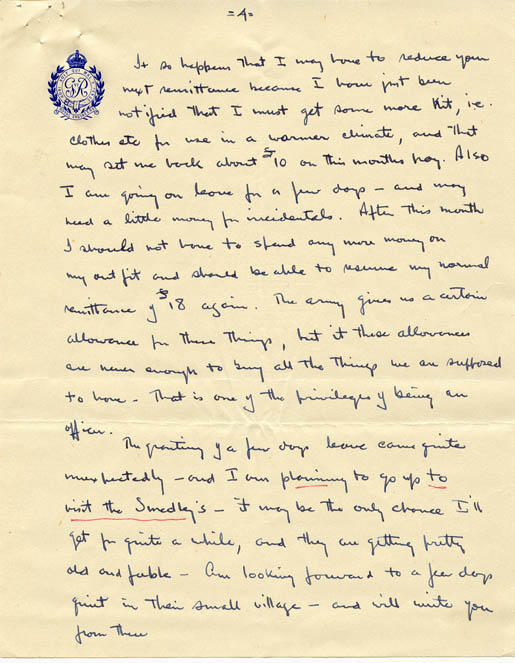 =4=
It so happens that I may have to reduce your
next remittance because I have just been
notified that I must get some more kit, i.e.
clothes etc for use in a warmer climate, and that
may set me back about £10 on this months pay. Also
I am going on leave for a few days – and may
need a little money for incidentals. After this month
I should not have to spend any more money on
my outfit and should be able to resume my normal
remittance of £18 again. The army gives us a certain
allowance for these things, but it these allowances
are never enough to buy all the things we are supposed
to have – That is one of the privileges of being an
officer.
The granting of a few days leave came quite
unexpectedly – and I am planning to go up to
visit the Smedley's – it may be the only chance I'll
get for quite a while, and they are getting pretty
old and feeble – Am looking forward to a few days
quiet in their small village – and will write you
from there